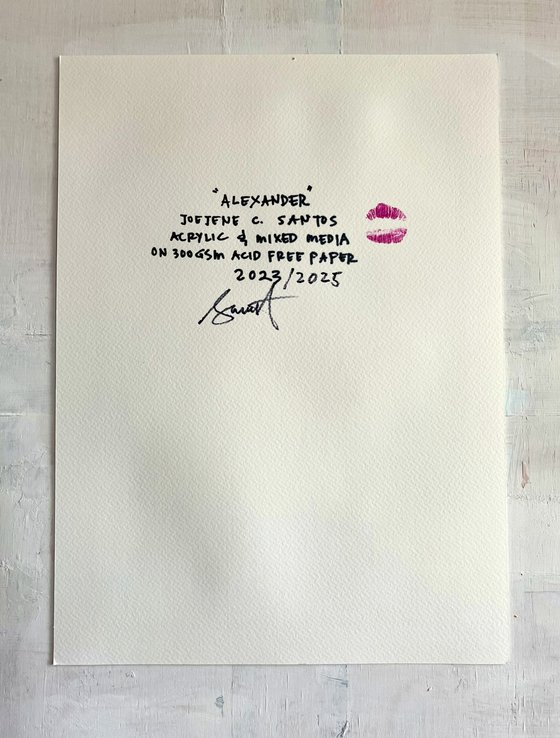 "ALEXANDER"
JOEJENE C. SANTOS
ACRYLIC & MIXED MEDIA
ON 300GSM ACID FREE PAPER
2023/2025